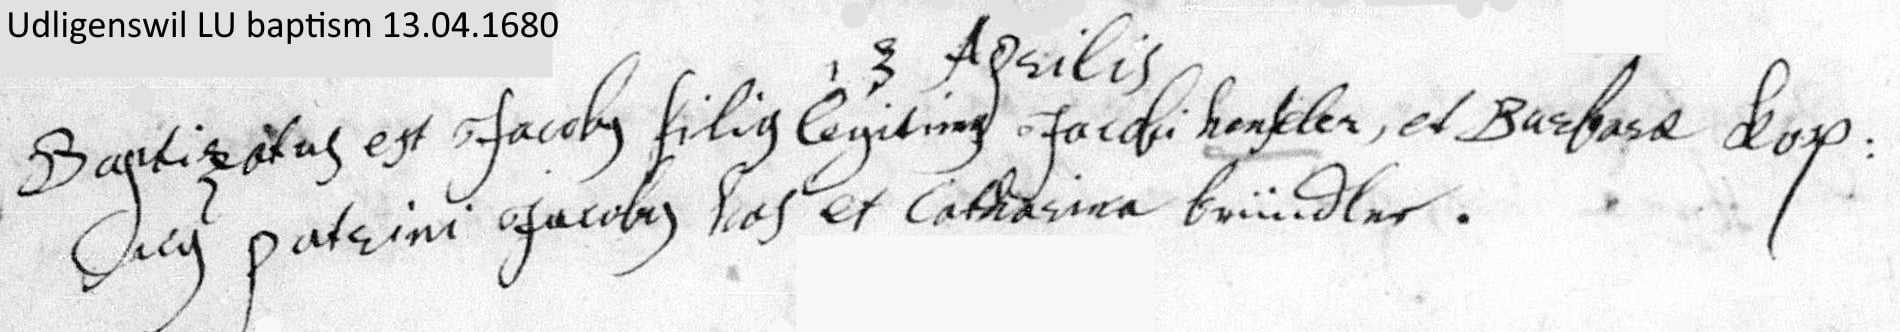 Udligenswil LU baptism 13.04.1680
13 Aprilis
Baptizatus est Jacobus filius legitimus Jacobi henseler, et Barbara kop:
Cuius patrini Jacobus has et Catharina bründler.